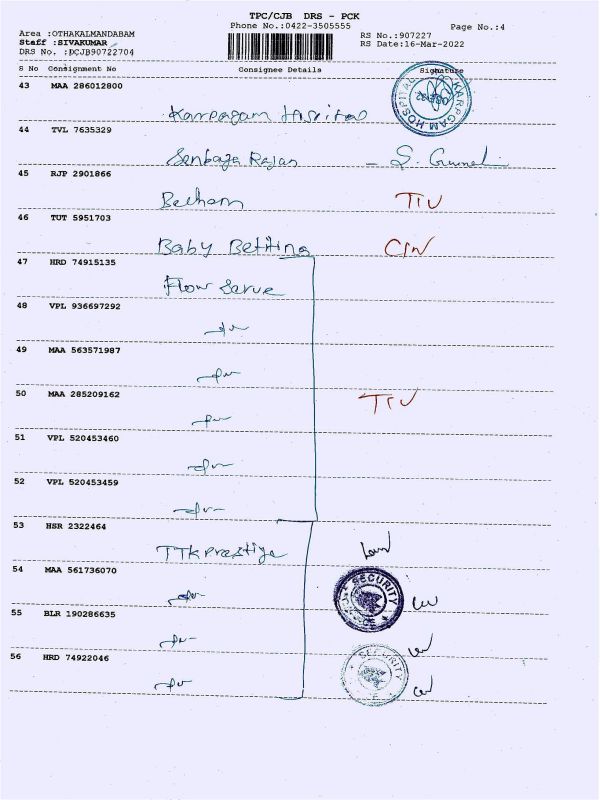 TPC/CJB DRS - PCK
Phone No.:0422-3505555
Page No.:4
Area :OTHAKALMANDABAM
Staff :SIVAKUMAR
DRS No. :DCJB90722704
RS No.:907227
RS Date:16-Mar-2022
S No Consignment No Consignee Details Signature
43 MAA 286012800
Karpagam Hospital
KARPAGAM HOSPITAL
44 TVL 7635329
Senbaga Rajan - S.
45 RJP 2901866
46 TUT 5951703
Baby Betting
47 HRD 74915135
Flow Serve
48 VPL 936697292
49 MAA 563571987
50 MAA 285209162
51 VPL 520453460
52 VPL 520453459
53 HSR 2322464
TTK Prestige
54 MAA 561736070
SECURITY
55 BLR 190286635
56 HRD 74922046
SECURITY